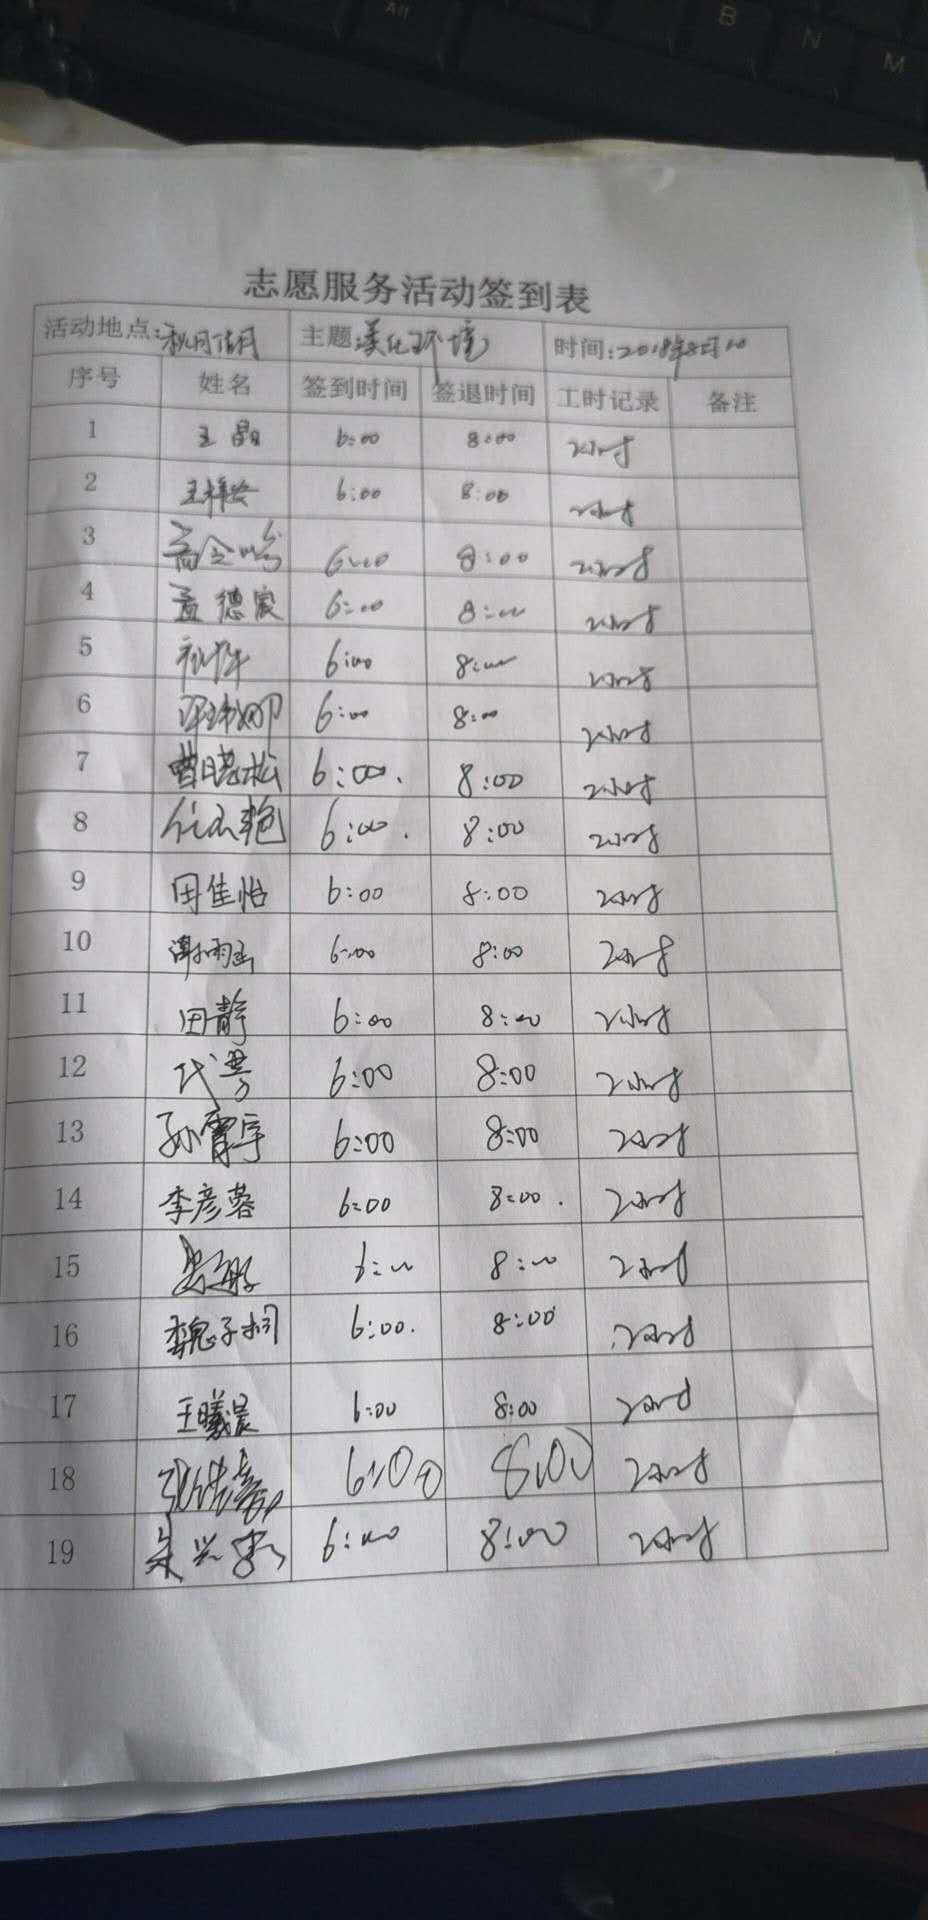 All
B
N
M
志愿服务活动签到表
活动地点:秋月湖 主题:美化环境 时间:2018年8月10
序号 姓名 签到时间 签退时间 工时记录 备注
1 王晶 6:00 8:00 2小时
2 王梓兴 6:00 8:00 2小时
3 6:00 8:00 2小时
4 孟德宸 6:00 8:00 2小时
5 6:00 8:00 2小时
6 6:00 8:00 2小时
7 曹晓松 6:00. 8:00 2小时
8 6:00. 8:00 2小时
9 田佳怡 6:00 8:00 2小时
10 谢雨函 6:00 8:00 2小时
11 田静 6:00 8:00 2小时
12 6:00 8:00 2小时
13 孙霄宇 6:00 8:00 2小时
14 李彦蓉 6:00 8:00. 2小时
15 6:00 8:00 2小时
16 魏子桐 6:00. 8:00 2小时
17 王曦晨 6:00 8:00 2小时
18 6:00 8:00 2小时
19 6:00 8:00 2小时